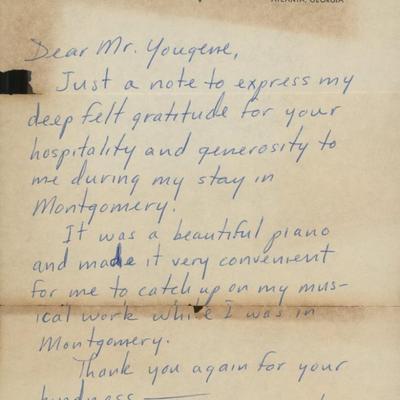 ATLANTA, GEORGIA
Dear Mr. Yougene,
Just a note to express my
deep felt gratitude for your
hospitality and generosity to
me during my stay in
Montgomery.
It was a beautiful piano
and made it very convenient
for me to catch up on my mus-
ical work while I was in
Montgomery.
Thank you again for your
kindness